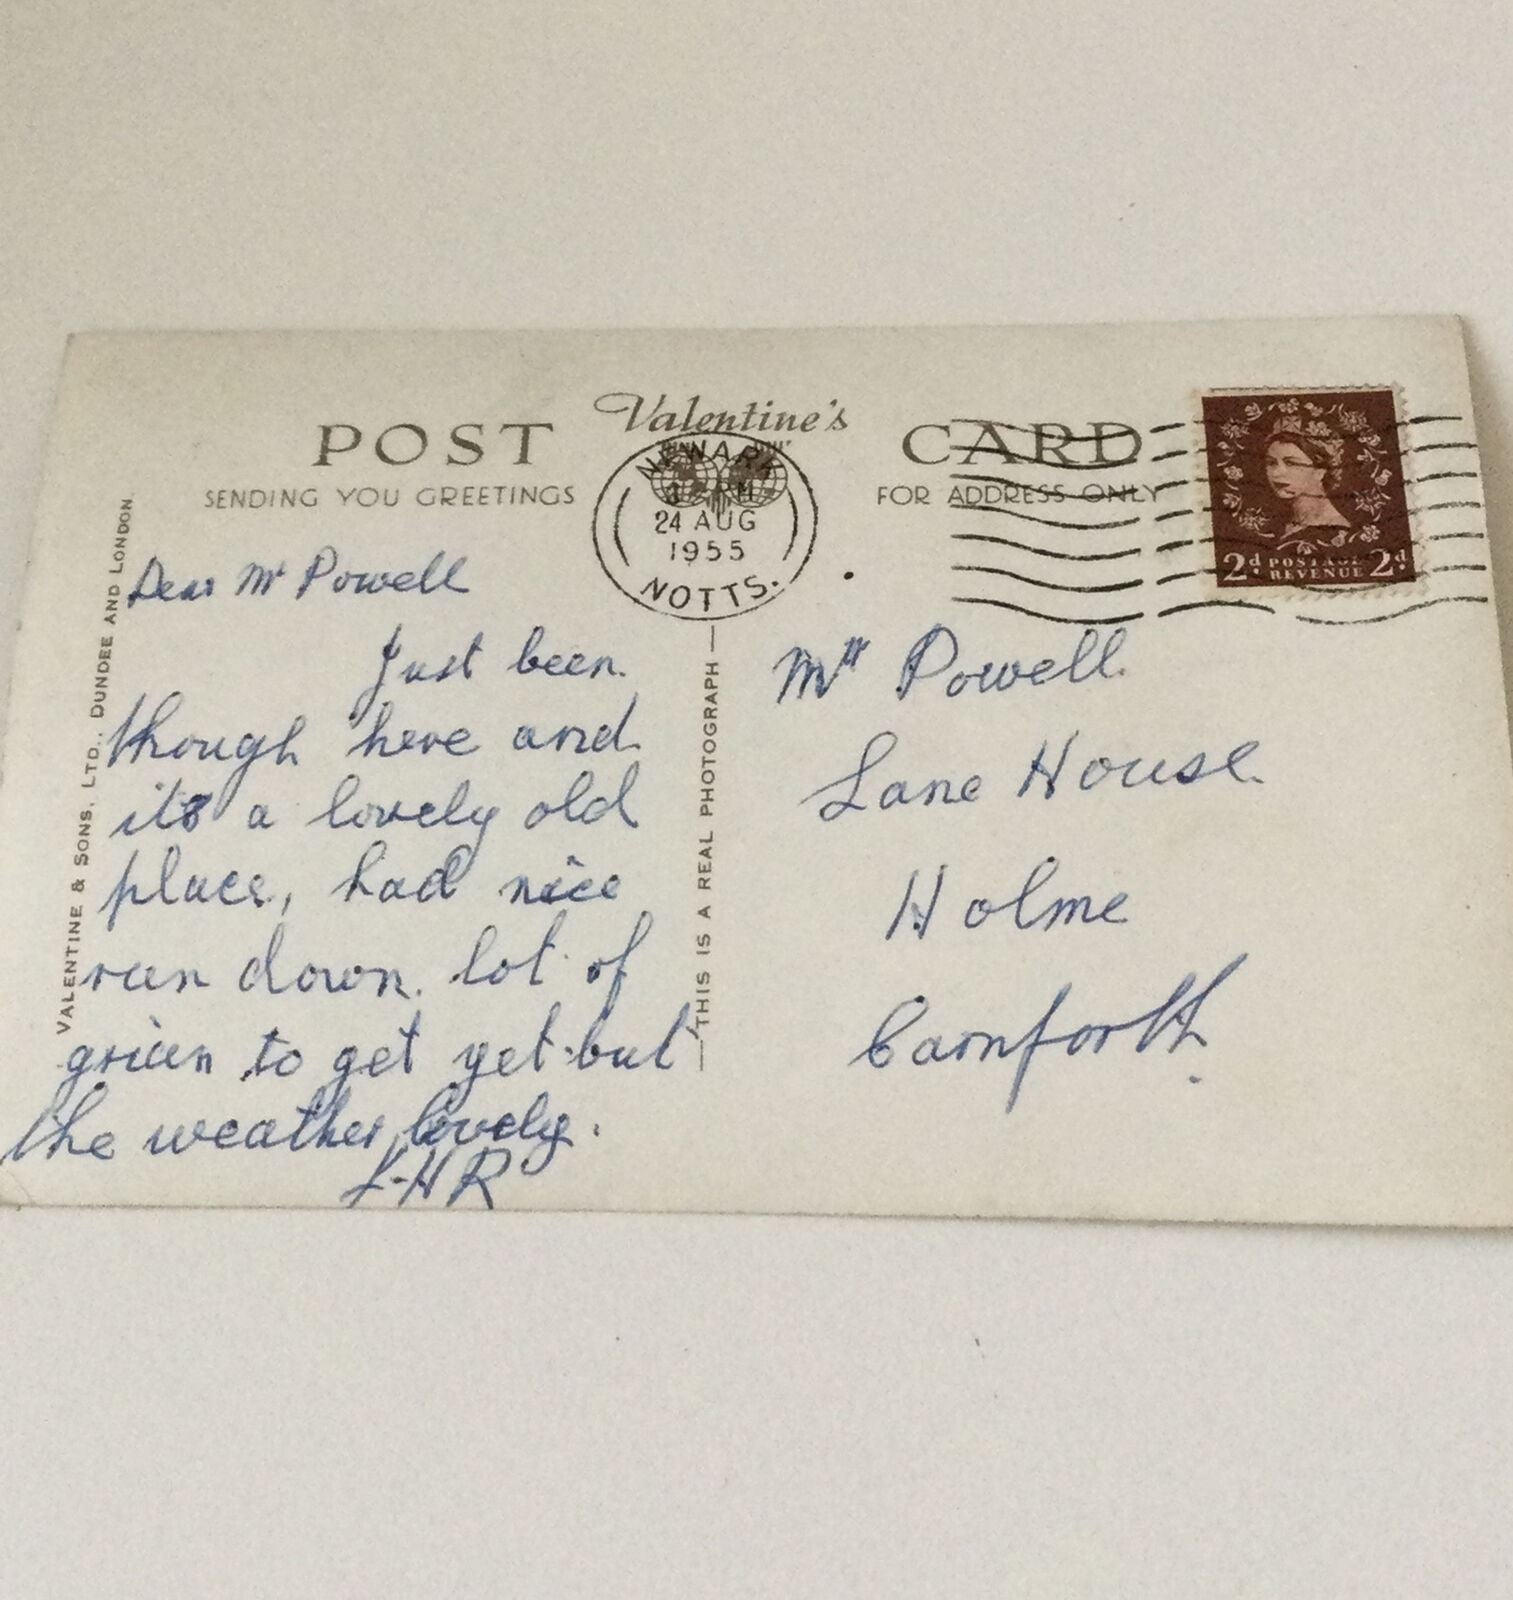 Valentine's
POST CARD
SENDING YOU GREETINGS
FOR ADDRESS ONLY
NEWARK
PM
24 AUG
1955
NOTTS.
2d POSTAGE REVENUE 2d
VALENTINE & SONS, LTD., DUNDEE AND LONDON.
THIS IS A REAL PHOTOGRAPH
Dear Mr Powell
Just been
though here and
its a lovely old
place, had nice
run down. lot of
to get yet but
the weather lovely.
L-HR
Mr Powell.
Lane House.
Holme
Carnforth